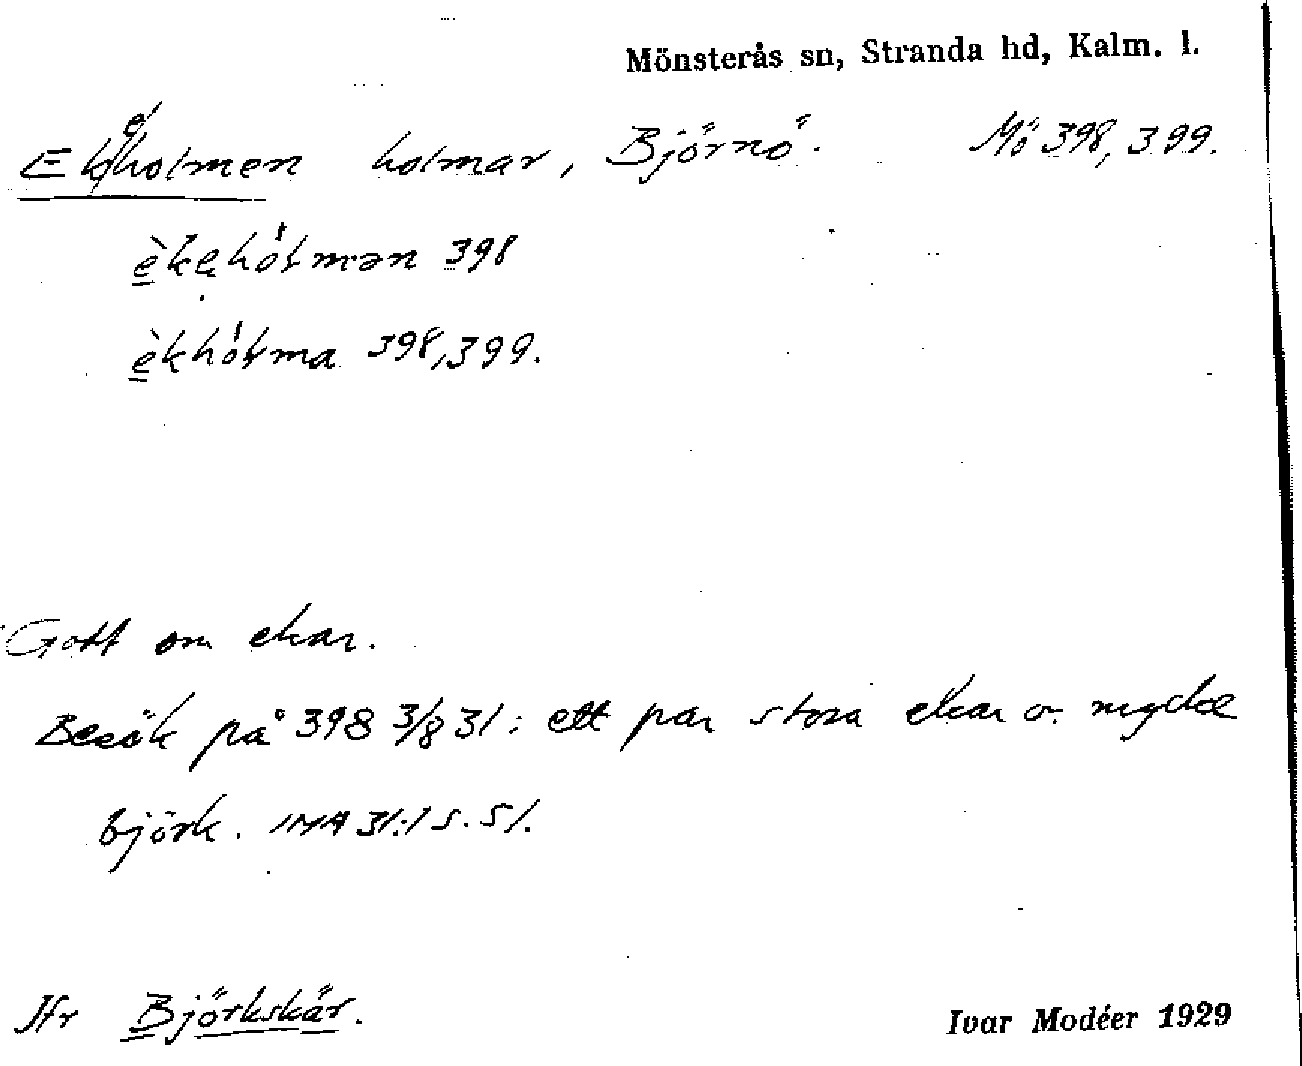 Mönsterås sn, Stranda hd, Kalm. l.
Ekeholmen holmar, Björnö. Mö 398, 399.
èkəhól̵mən 398
èkhól̵ma 398, 399.
Gott om ekar.
Besök på 398 3/8 31: ett par stora ekar o. mycke
björk. IMA 31:1 s. 51.
Jfr Björkskär.
Ivar Modéer 1929